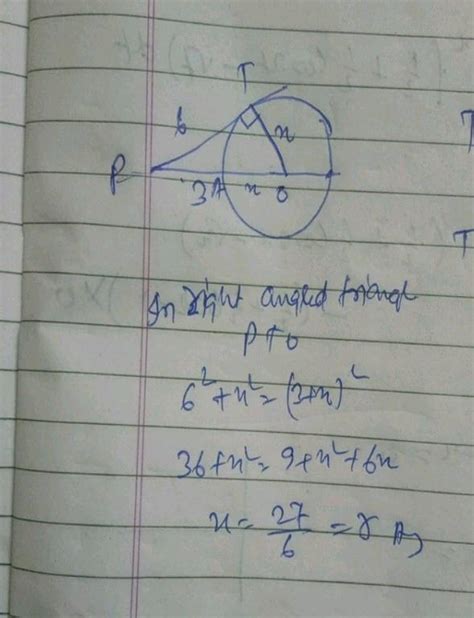 T
6
x
P
3 A x O
In right angled triangl
PTO
6² + x² = (3+x)²
36 + x² = 9 + x² + 6x
x = 27/6 = r
T